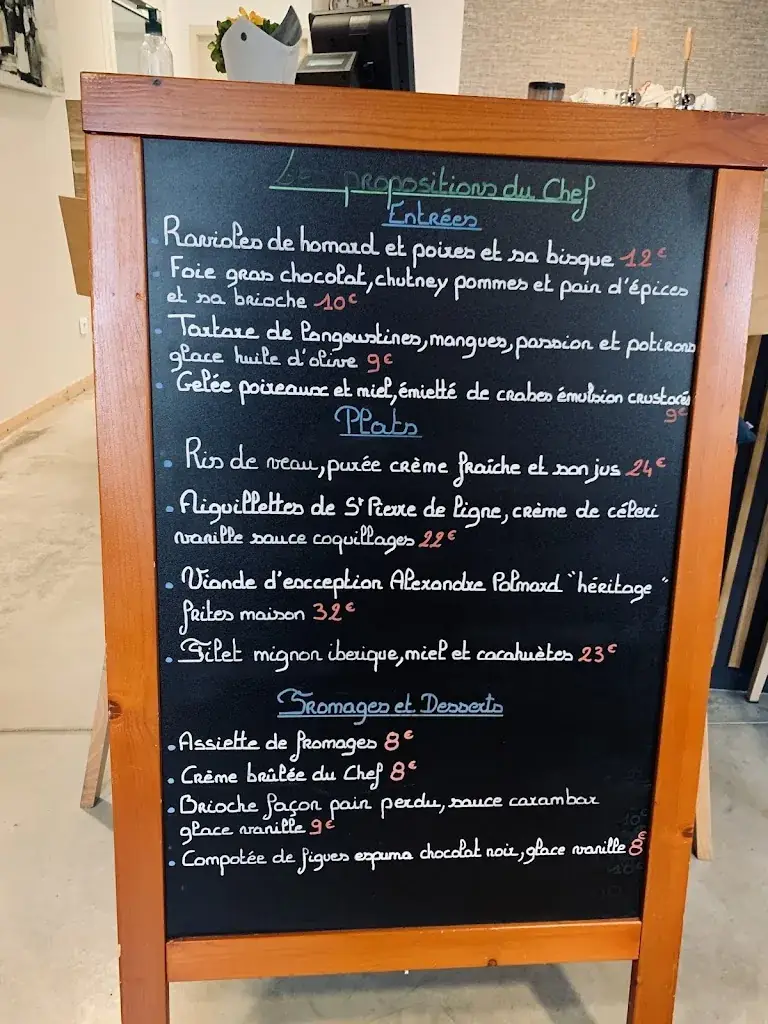 Les propositions du Chef
Entrées
Ravioles de homard et poires et sa bisque 12€
Foie gras chocolat, chutney pommes et pain d'épices
et sa brioche 10€
Tartare de langoustines, mangues, passion et potirons
glace huile d'olive 9€
Gelée poireaux et miel, émietté de crabes émulsion crustacés
9€
Plats
Ris de veau, purée crème fraîche et son jus 24€
Aiguillettes de St Pierre de ligne, crème de céleri
vanille sauce coquillages 22€
Viande d'exception Alexandre Polmard "héritage"
frites maison 32€
Filet mignon iberique, miel et cacahuètes 23€
Fromages et Desserts
Assiette de fromages 8€
Crème brûlée du Chef 8€
Brioche façon pain perdu, sauce carambar
glace vanille 9€
Compotée de figues espuma chocolat noir, glace vanille 8€